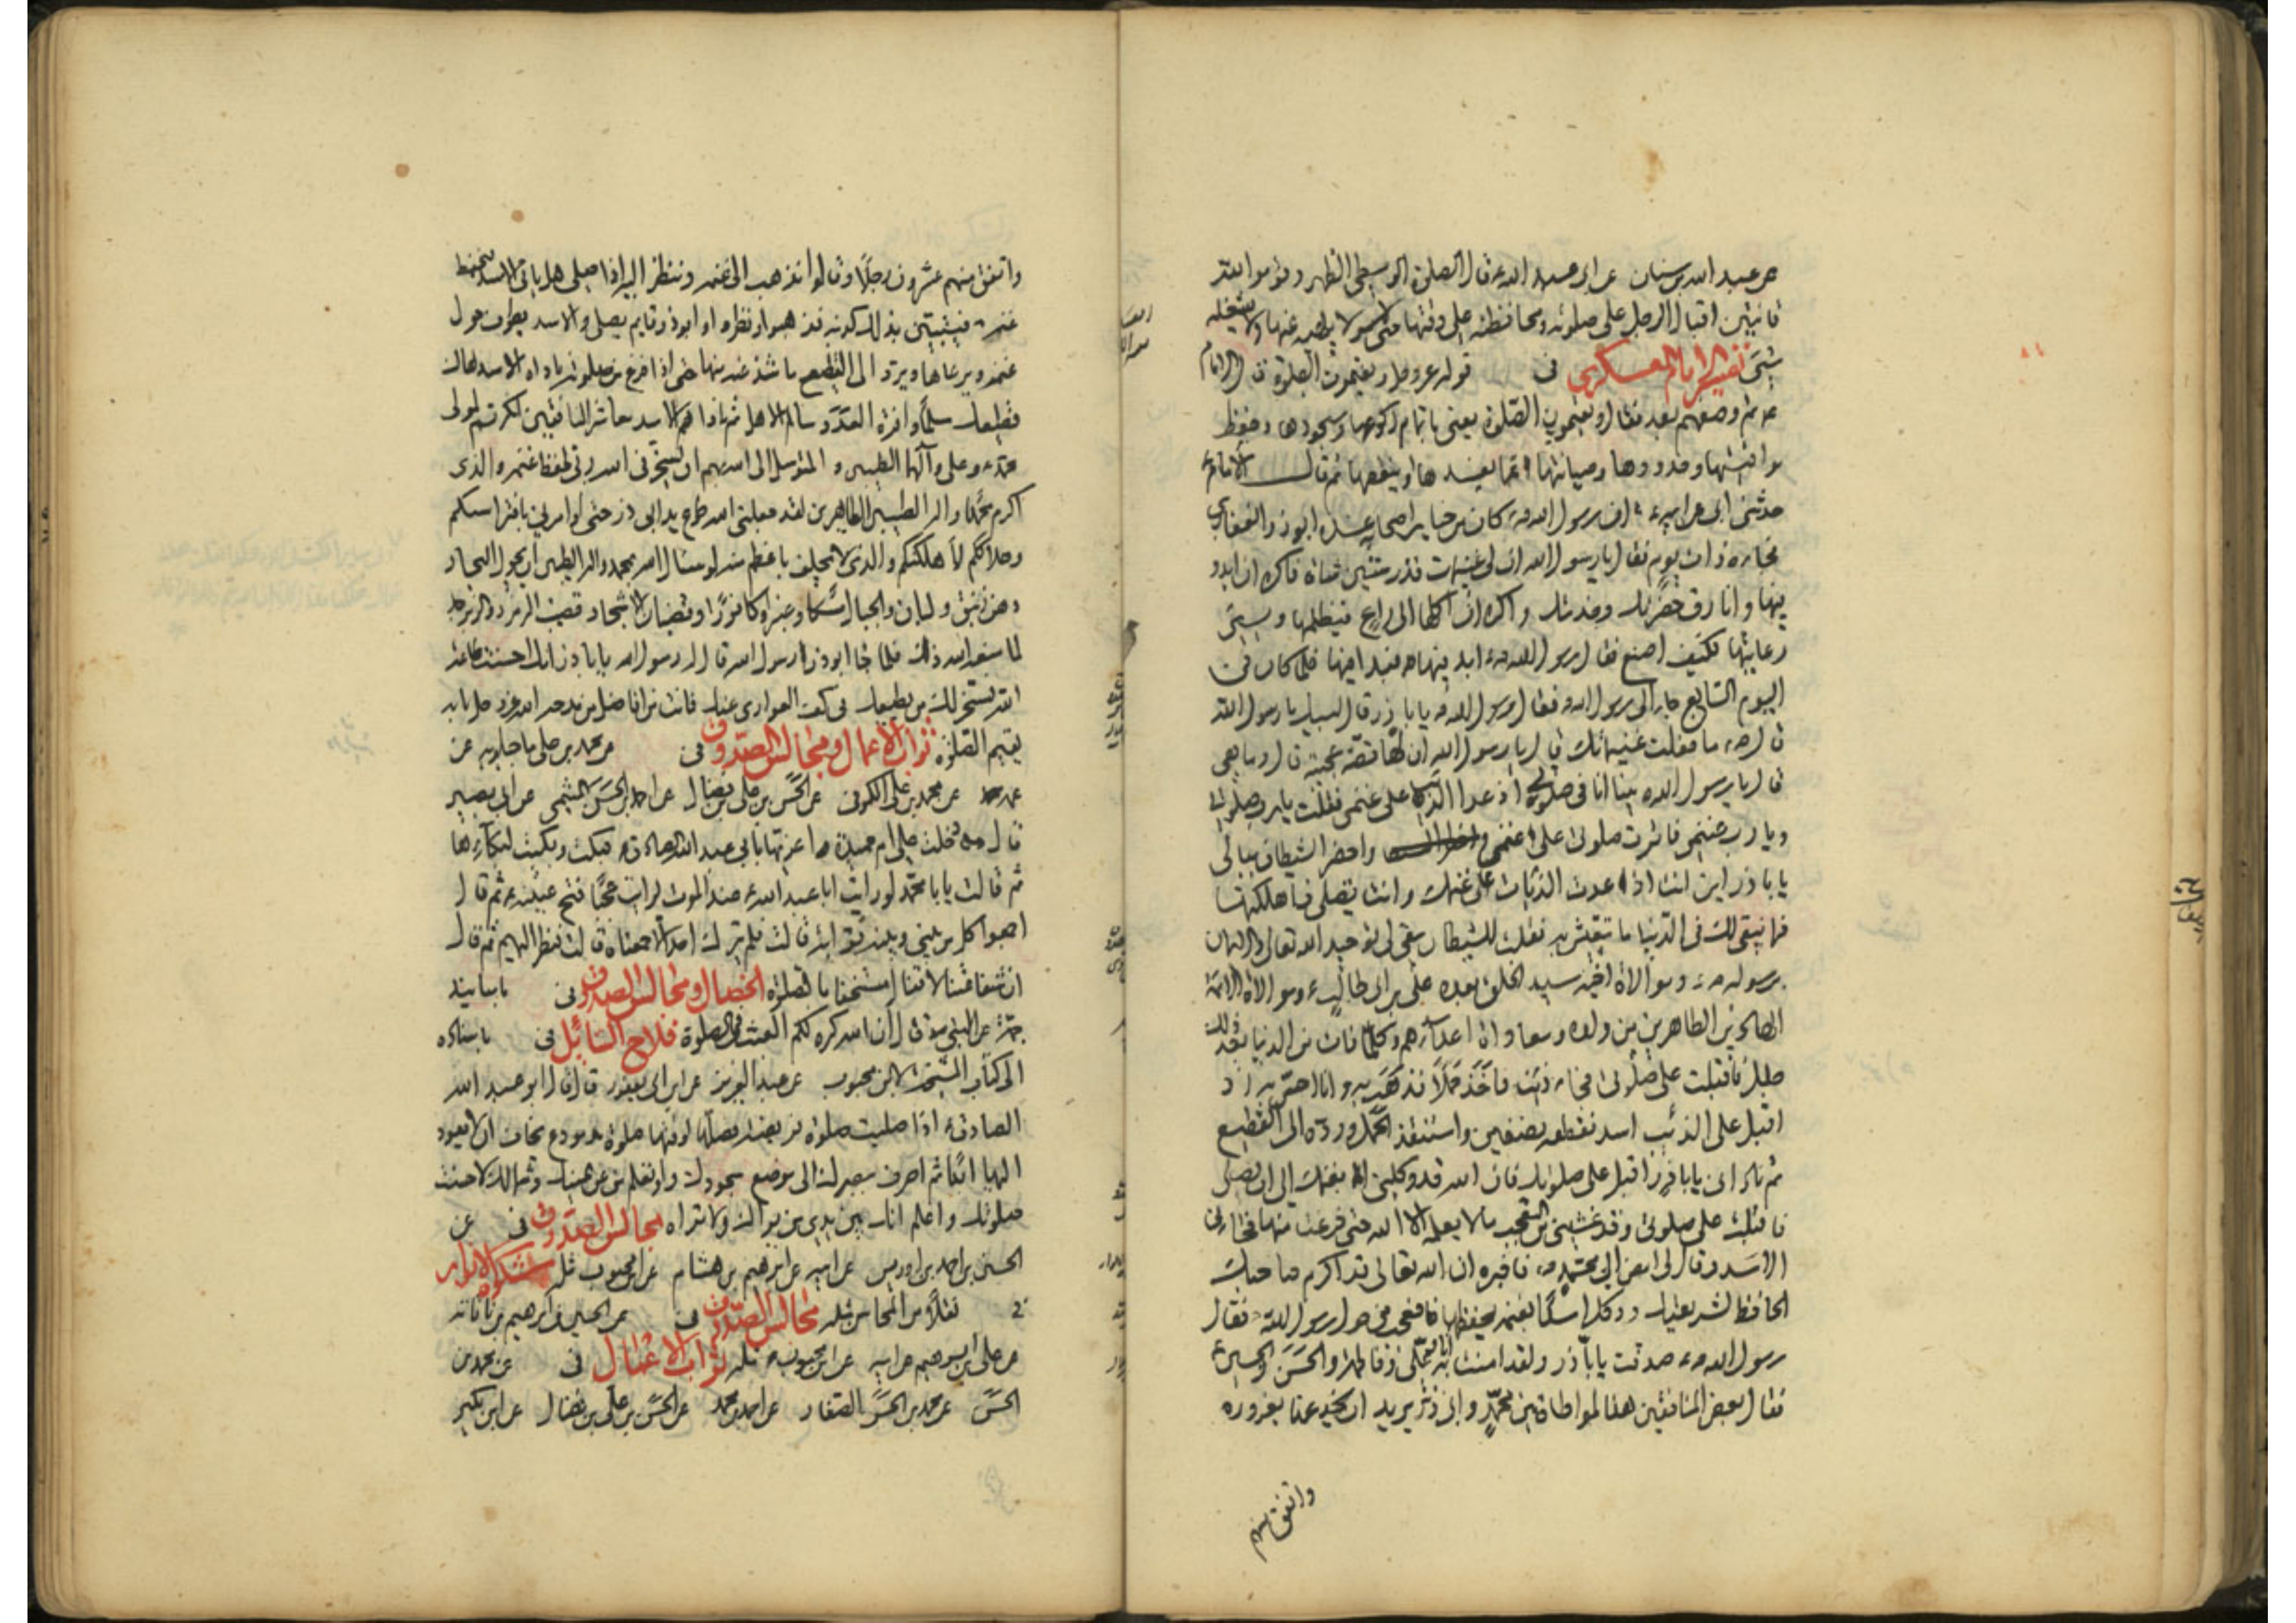 عن عبد الله بن سنان عن ابى عبد الله ع قال الصلوة الوسطى الظهر وقوموا لله
قانتين اقبال الرجل على صلوته ومحافظته على وقتها حتى لا يلهيه عنها ولا يشغله
شىء تفسير الامام العسكرى فى قوله عز وجل ويقيمون الصلوة قال الامام
ع ثم وصفهم بعد فقال ويقيمون الصلوة يعنى باتمام ركوعها وسجودها وحفظ
مواقيتها وحدودها وصيانتها عما يفسدها او ينقصها ثم قال الامام ع
حدثنى ابى عن ابيه ع ان رسول الله ص كان من خيار اصحابه عنده ابوذر الغفارى
فجاءه ذات يوم فقال يا رسول الله ان لى غنيمات قدر ستين شاة فاكره ان ابدو
فيها وافارق حضرتك وخدمتك واكره ان اكلها الى راع فيظلمها ويسىء
رعايتها فكيف اصنع فقال رسول الله ص ابد فيها فبدا فيها فلما كان فى
اليوم السابع جاء الى رسول الله ص فقال رسول الله ص يا باذر قال لبيك يا رسول الله
قال ص ما فعلت غنيماتك قال يا رسول الله ان لها قصة عجيبة قال وما هى
قال يا رسول الله بينا انا فى صلوتى اذ عدا الذئب على غنمى فقلت يا رب صلوتى
ويا رب غنمى فاثرت صلوتى على غنمى واحضر الشيطان ببالى
يا باذر اين انت اذا عدت الذئاب على غنمك وانت تصلى فاهلكتها
فما يبقى لك فى الدنيا ما تتعيش به فقلت للشيطان يبقى لى توحيد الله تعالى والايمان
برسوله ص وموالاة اخيه سيد الخلق بعده على بن ابى طالب ع وموالاة الائمة
الطاهرين من ولده ومعاداة اعدائهم وكلما فات من الدنيا بعد ذلك
جلل فاقبلت على صلوتى فجاء ذئب فاخذ حملا فذهب به وانا احس به اذ
اقبل على الذئب اسد فقطعه نصفين واستنقذ الحمل ورده الى القطيع
ثم نادانى يا باذر اقبل على صلوتك فان الله قد وكلنى بغنمك الى ان تصلى
فاقبلت على صلوتى وقد غشينى من التعجب ما لا يعلمه الا الله حتى فرغت منها فجاءنى
الاسد وقال لى امض الى محمد ص فاخبره ان الله تعالى قد اكرم صاحبك
الحافظ لشريعتك ووكل اسدا بغنمه يحفظها فتعجب من حول رسول الله فقال
رسول الله ص صدقت يا باذر ولقد امنت به انا وعلى وفاطمة والحسن والحسين ع
فقال بعض المنافقين هذا لمواطاة بين محمد وابى ذر يريد ان يخدعنا بغروره
واتفق منهم
واتفق منهم عشرون رجلا وقالوا نذهب الى غنمه وننظر اليه اذا صلى هل ياتى الاسد فيحفظ
غنمه فيتبين بذلك كذبه فذهبوا ونظروا وابوذر قايم يصلى والاسد يطوف حول
غنمه ويرعاها ويرد الى القطيع ما شذ عنه منها حتى اذا فرغ من صلوته ناداه الاسد هاك
قطيعك مسلما وافر العدد سالما ثم ناداهم الاسد معاشر المنافقين انكرتم لمولى
محمد وعلى وآلهما الطيبين والمتوسل الى الله بهم ان يسخرنى الله ربى لحفظ غنمه والذى
اكرم محمدا واله الطيبين الطاهرين لقد جعلنى الله طوع يد ابى ذر حتى لو امرنى بافتراسكم
وهلاككم لاهلكتكم والذى لا يحلف باعظم منه لو سئل الله بمحمد واله الطيبين ان يحول البحار
دهن زنبق ولبان والجبال مسكا وعنبرا وكافورا وقضبان الاشجار قضب الزمرد والزبرجد
لما منعه الله ذلك فلما جاء ابوذر الى رسول الله قال له رسول الله يا باذر انك احسنت طاعة
الله فسخر لك من يطيعك فى كف العوادى عنك فانت من افاضل من مدحه الله عز وجل بانه
يقيم الصلوة ثواب الاعمال ومجالس الصدوق فى عن محمد بن على ماجيلويه عن
عمه عن محمد بن على الكوفى عن الحسن بن على بن فضال عن احمد بن الحسن الميثمى عن ابى بصير
قال دخلت على ام حميدة اعزيها بابى عبد الله الصادق ع فبكت وبكيت لبكائها
ثم قالت يا با محمد لو رايت ابا عبد الله ع عند الموت لرايت عجبا فتح عينيه ثم قال
اجمعوا كل من بينى وبينه قرابة قالت فلم نترك احدا الا جمعناه قالت فنظر اليهم ثم قال
ان شفاعتنا لا تنال مستخفا بالصلوة الخصال ومجالس الصدوق فى باسانيد
جمة عن النبى ص قال ان الله كره لكم العبث فى الصلوة فلاح السائل فى باسناده
الى كتاب المشيخة لابن محبوب عن عبد العزيز عن ابن ابى يعفور قال قال ابو عبد الله
الصادق ع اذا صليت صلوة فريضة فصلها لوقتها صلوة مودع يخاف ان لا يعود
اليها ابدا ثم اصرف ببصرك الى موضع سجودك ولو تعلم من عن يمينك وشمالك لاحسنت
صلوتك واعلم انك بين يدى من يراك ولا تراه مجالس الصدوق فى عن
الحسين بن احمد بن ادريس عن ابيه عن ابرهيم بن هشام عن ابن محبوب مثله مشكوة الانوار
نقلا من المحاسن مثله مجالس الصدوق فى عن الحسين بن ابرهيم بن ناتانه
عن على بن ابرهيم عن ابيه عن ابن محبوب مثله ثواب الاعمال فى عن محمد بن
الحسن عن محمد بن الحسن الصفار عن احمد بن محمد عن الحسن بن على بن فضال عن ابن بكير